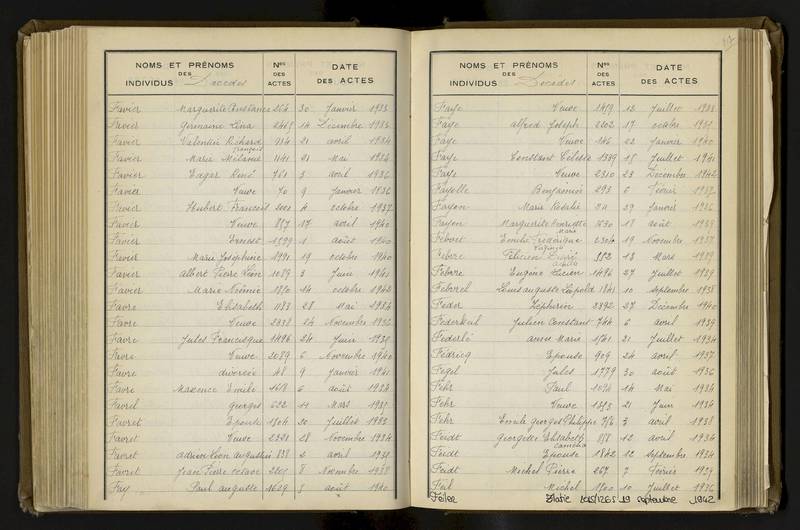 NOMS ET PRÉNOMS DES INDIVIDUS Décédés
Nos DES ACTES
DATE DES ACTES
Favier Marguerite Constance 264 30 Janvier 1933
Favier Germaine Lina 2465 14 Décembre 1933
Favier Valentin Richard François 934 21 avril 1934
Favier Marie Mélanie 1141 21 Mai 1934
Favier Edgar René 761 3 avril 1936
Favier Veuve 70 9 Janvier 1936
Favier Hubert Francois 2002 4 octobre 1937
Favier Veuve 857 17 avril 1940
Favier Ernest 1599 1 août 1940
Favier Marie Joséphine 1991 19 octobre 1940
Favier Albert Pierre Léon 1089 3 Juin 1941
Favier Marie Noémie 1850 14 octobre 1942
Favre Elisabeth 1183 28 Mai 1934
Favre Veuve 2238 24 Novembre 1936
Favre Jules Francisque 1496 24 Juin 1938
Favre Veuve 2089 6 Novembre 1940
Favre divorcée 48 9 Janvier 1941
Favre Maxence Emile 1618 6 août 1934
Favrel Georges 622 14 Mars 1935
Favret Epouse 1504 20 Juillet 1933
Favret Veuve 2321 28 Novembre 1934
Favret adrien Léon augustin 838 2 avril 1938
Favret Jean Pierre octave 2205 8 Novembre 1938
Fay Paul auguste 1629 5 août 1940
NOMS ET PRÉNOMS DES INDIVIDUS Décédés
Nos DES ACTES
DATE DES ACTES
Faye Veuve 1459 13 Juillet 1933
Faye alfred Joseph 2202 17 octobre 1935
Faye Veuve 146 22 Janvier 1940
Faye Constant Céleste 1389 15 Juillet 1941
Faye Veuve 2310 23 Décembre 1942
Fayolle Benjamin 293 6 Février 1937
Fayon Marie Rosalie 211 29 Janvier 1936
Fayon Marguerite Henriette 1630 18 août 1939
Febvet Emile Frédérique Marie 2304 19 Novembre 1937
Febvre Félicien 552 13 Mars 1939
Febvre Eugène Lucien 1496 27 Juillet 1939
Febvrel Louis auguste Léopold 1841 10 septembre 1938
Feder Zéphirin 2392 27 Décembre 1940
Federkeil Julien Constant 744 6 avril 1939
Federlé anne Marie 1541 21 Juillet 1934
Fédricq Epouse 909 24 avril 1937
Fegel Jules 1779 30 août 1936
Fehr Paul 1074 14 Mai 1934
Fehr Veuve 1353 21 Juin 1934
Fehr Emile georges Philippe 776 3 avril 1938
Feidt Georgette Elisabeth 858 12 avril 1934
Feidt Epouse 1842 12 septembre 1934
Feidt Michel Pierre 267 7 Février 1939
Feil Michel 1500 10 Juillet 1936
Feilec Zlatie 1265 19 septembre 1942